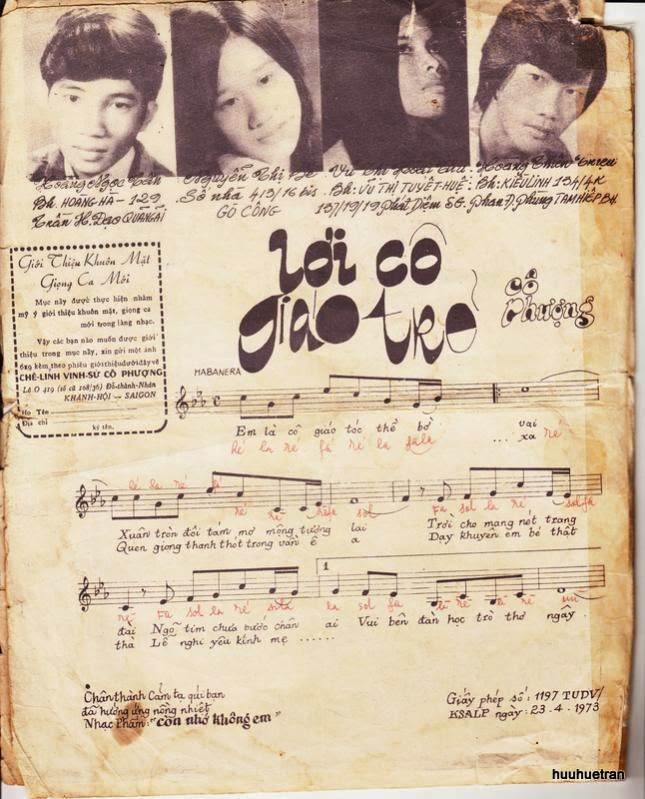 Hoàng Ngọc
Bh. HOANG HA - 129
Trần H. Đạo QUANGAI
Nguyễn Thị Bé
Số nhà 413/16 bis
GÒ CÔNG
Vũ Thị
Bh: VŨ THỊ TUYẾT HUÊ
157/19/19 Phát Diệm SG.
Hoàng
Bh: KIỀU LINH 134/4K
Phan Đ. Phùng TAM HIỆP BH
Giới Thiệu Khuôn Mặt
Giọng Ca Mới
Mục này được thực hiện nhằm
mỹ ý giới thiệu khuôn mặt, giọng ca
mới trong làng nhạc.
Vậy các bạn nào muốn được giới
thiệu trong mục này, xin gửi một ảnh
6x9 kèm theo phiếu giới thiệu dưới đây về
CHẾ-LINH VINH-SỬ CÔ PHƯỢNG
Lô O 419 (số cũ 108/36) Đỗ-thành-Nhân
KHÁNH-HỘI — SAIGON
Họ Tên
Địa chỉ
ký tên.
lời cô
giáo trẻ
cô
Phượng
HABANERA
Em là cô giáo tóc thổ bờ vai
... xa
Xuân tròn đôi tám mơ mộng tương lai Trời cho mang nét trang
Quen giọng thanh thót trong vần ê a Dạy khuyên em bé thật
1
đài Ngõ tim chưa bước chân ai Vui bên đàn học trò thơ ngây
thà Lễ nghi yêu kính mẹ ......
Chân thành Cảm tạ quí bạn
đã hưởng ứng nồng nhiệt
Nhạc Phẩm: "còn nhớ không em"
Giấy phép số: 1197 TUDV/
KSALP ngày: 23.4.1973
huuhuetran